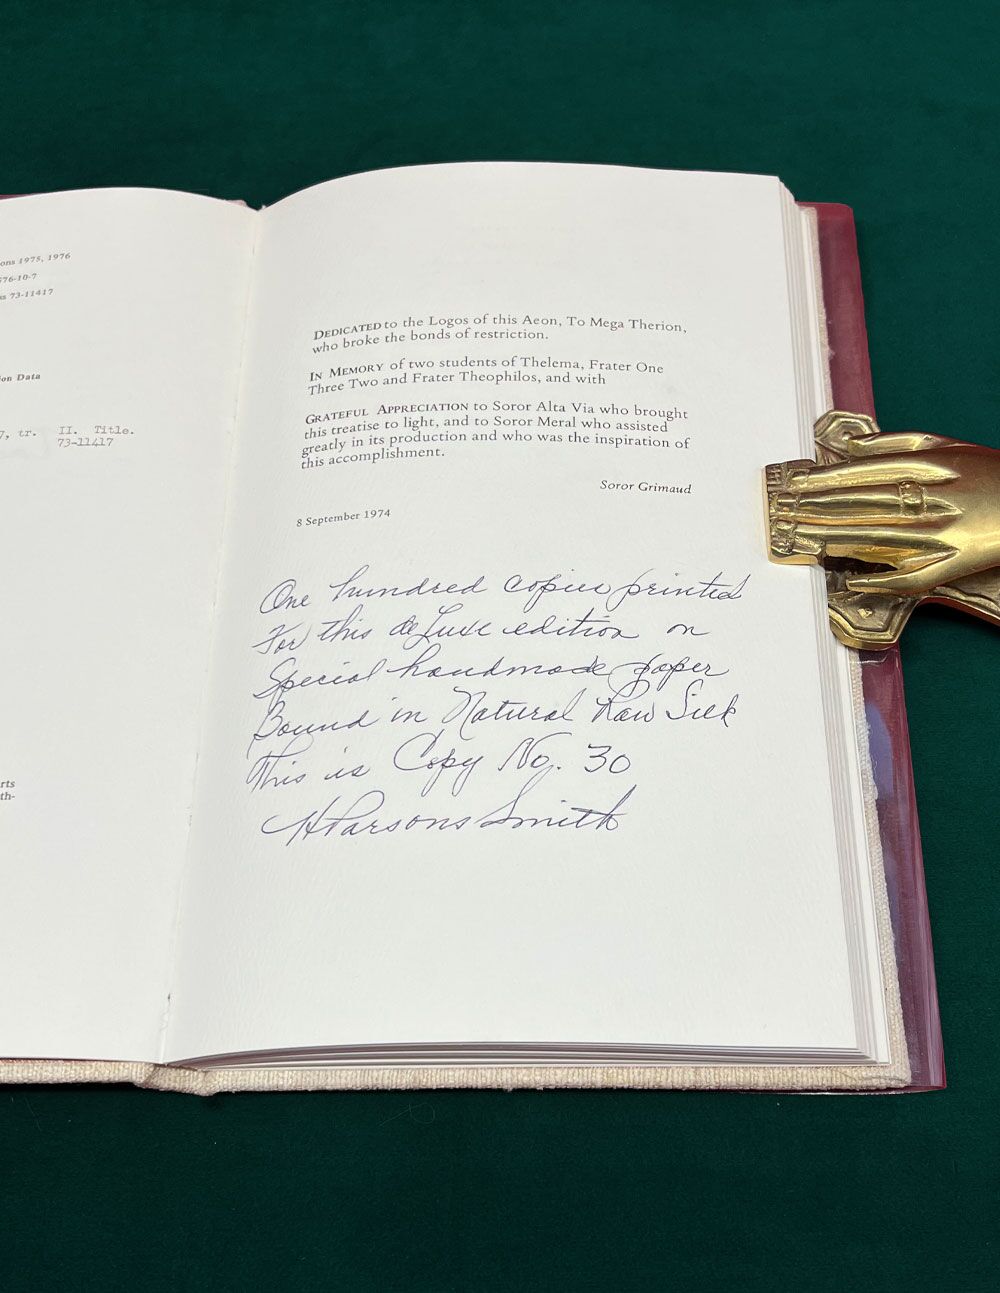 ons 1975, 1976
76-10-7
ss 73-11417
on Data
7, tr. II. Title.
73-11417
rts
th-
DEDICATED to the Logos of this Aeon, To Mega Therion,
who broke the bonds of restriction.
IN MEMORY of two students of Thelema, Frater One
Three Two and Frater Theophilos, and with
GRATEFUL APPRECIATION to Soror Alta Via who brought
this treatise to light, and to Soror Meral who assisted
greatly in its production and who was the inspiration of
this accomplishment.
Soror Grimaud
8 September 1974
One hundred copies printed
For this deLuxe edition on
Special handmade paper
Bound in Natural Raw Silk
This is Copy No. 30
H Parsons Smith